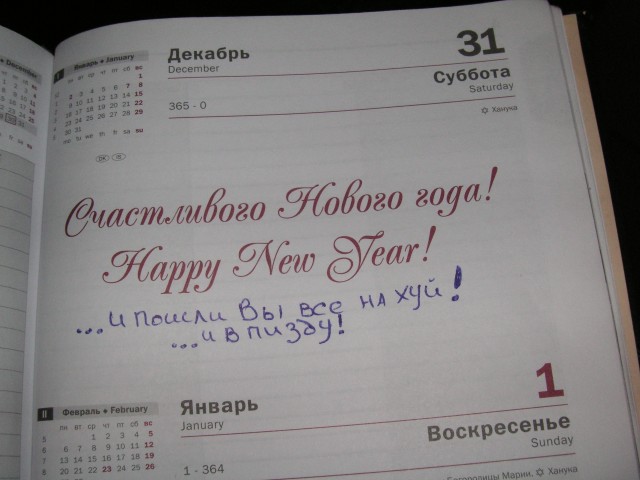 December
I Январь ♦ January
пн вт ср чт пт сб вс
1
2 3 4 5 6 7 8
9 10 11 12 13 14 15
16 17 18 19 20 21 22
23 24 25 26 27 28 29
30 31
mo tu we th fr sa su
Декабрь
December
31
Суббота
Saturday
365 - 0
✡ Ханука
Счастливого Нового года!
Happy New Year!
...и поисли Вы все на хуй!
...и в пизду!
II Февраль ♦ February
пн вт ср чт пт сб вс
5 1 2 3 4 5
6 6 7 8 9 10 11 12
7 13 14 15 16 17 18 19
8 20 21 22 23 24 25 26
Январь
January
1
Воскресенье
Sunday
1 - 364
Богородицы Марии, ✡ Ханука